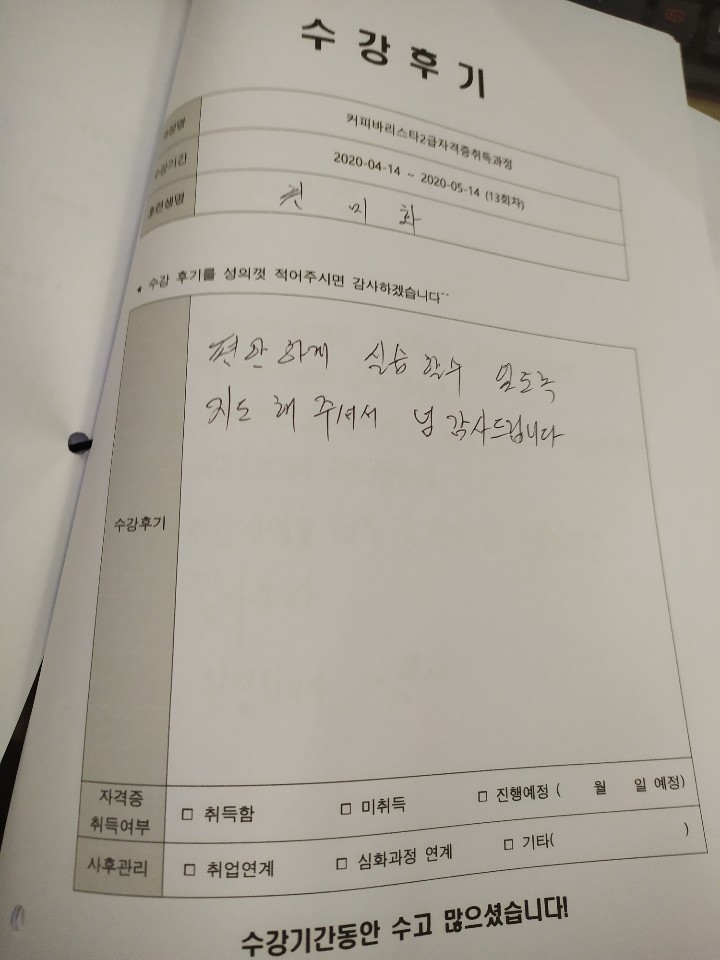 수강후기
과정명 커피바리스타2급자격증취득과정
수강기간 2020-04-14 ~ 2020-05-14 (13회차)
훈련생명 권 미 화
* 수강 후기를 성의껏 적어주시면 감사하겠습니다^^
편안하게 실습 할수 있도록
지도 해 주셔서 넘 감사드립니다
수강후기
자격증
취득여부 □ 취득함 □ 미취득 □ 진행예정 ( 월 일 예정)
사후관리 □ 취업연계 □ 심화과정 연계 □ 기타( )
수강기간동안 수고 많으셨습니다!